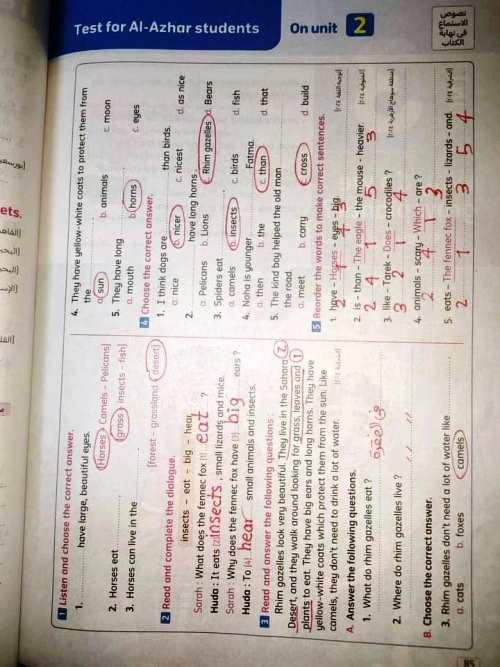 Test for Al-Azhar students
On unit 2
نصوص
الاستماع
فى نهاية
الكتاب
1 Listen and choose the correct answer.
1. ............ have large, beautiful eyes.
(Horses - Camels - Pelicans)
2. Horses eat ............
(grass - insects - fish)
3. Horses can live in the ............
(forest - grassland - desert)
2 Read and complete the dialogue.
insects - eat - big - hear
Sarah : What does the fennec fox (1) eat ?
Huda : It eats (2) insects , small lizards and mice.
Sarah : Why does the fennec fox have (3) big ears ?
Huda : To (4) hear small animals and insects.
3 Read and answer the following questions :
Rhim gazelles look very beautiful. They live in the Sahara 2
Desert, and they walk around looking for grass, leaves and 1
plants to eat. They have big ears and long horns. They have
yellow-white coats which protect them from the sun. Like
camels, they don't need to drink a lot of water.
A. Answer the following questions.
1. What do rhim gazelles eat ?
فى القطعة
2. Where do rhim gazelles live ?
B. Choose the correct answer.
3. Rhim gazelles don't need a lot of water like ............
a. cats b. foxes c. camels
4. They have yellow-white coats to protect them from
the ............
a. sun b. animals c. moon
5. They have long ............
a. mouth b. horns c. eyes
4 Choose the correct answer.
1. I think dogs are ............ than birds.
a. nice b. nicer c. nicest d. as nice
2. ............ have long horns.
a. Pelicans b. Lions c. Rhim gazelles d. Bears
3. Spiders eat ............
a. camels b. insects c. birds d. fish
4. Noha is younger ............ Fatma.
a. then b. the c. than d. that
5. The kind boy helped the old man ............
the road.
a. meet b. carry c. cross d. build
5 Reorder the words to make correct sentences.
1. have - Horses - eyes - big.
2 1 4 3
2. is - than - The eagle - the mouse - heavier.
2 4 1 5 3
3. like - Tarek - Does - crocodiles ?
3 2 1 4
4. animals - scary - Which - are ?
2 4 1 3
5. eats - The fennec fox - insects - lizards - and.
2 1 3 5 4
85